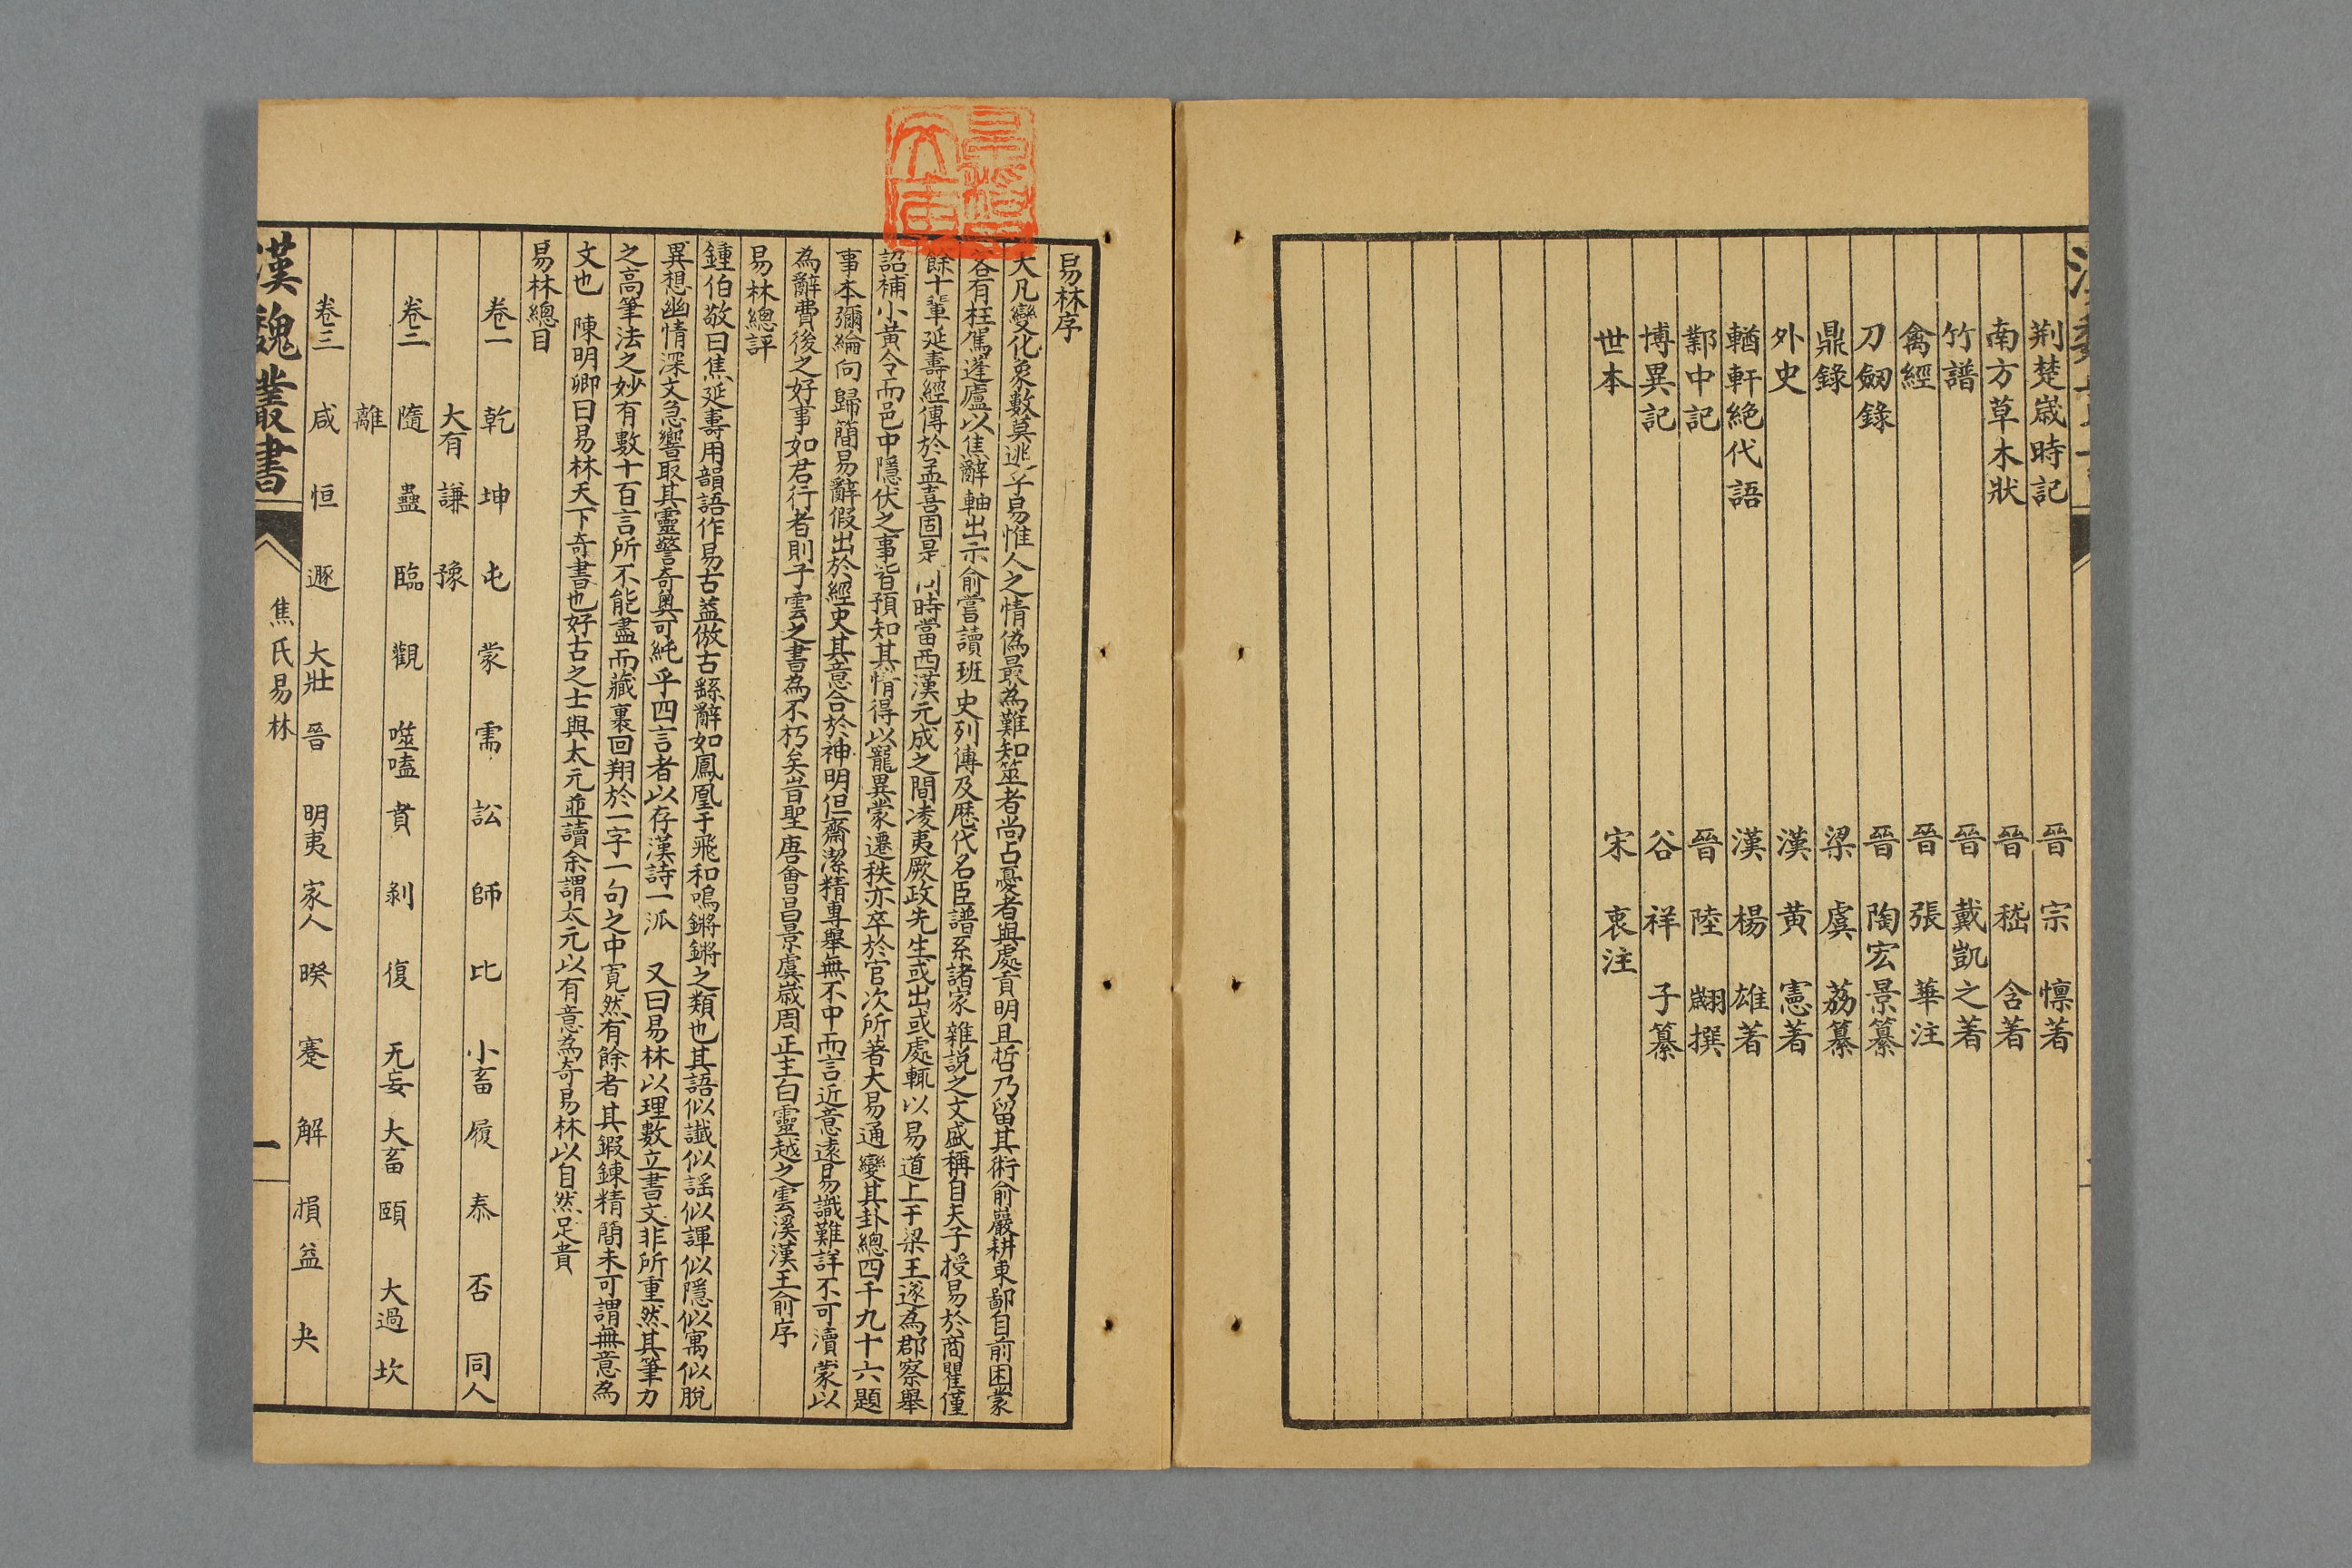 荆楚嵗時記 晉 宗 懍著
南方草木狀 晉 嵇 含著
竹譜 晉 戴凱之著
禽經 晉 張 華注
刀劒錄 晉 陶宏景纂
鼎錄 梁 虞 荔纂
外史 漢 黃 憲著
輶軒絶代語 漢 楊 雄著
鄴中記 晉 陸 翽撰
博異記 谷 祥 子纂
世本 宋 衷注
易林序
大凡變化象數莫逃乎易惟人之情僞最為難知筮者尚占憂者與處貢明且哲乃留其術俞巖耕東鄙自前困蒙
客有枉駕蓬廬以焦辭軸出示俞嘗讀班史列傳及歷代名臣譜系諸家雜説之文盛稱自夫子授易於商瞿僅
餘十軰延壽經傳於孟喜固是同時當西漢元成之間凌夷厥政先生或出或處輒以易道上于梁王遂為郡察舉
詔補小黃令而邑中隱伏之事皆預知其情得以寵異蒙遷秩亦卒於官次所著大易通變其卦總四千九十六題
事本彌綸向歸簡易辭假出於經史其意合於神明但齋潔精專舉無不中而言近意遠易識難詳不可瀆蒙以
為辭費後之好事如君行者則子雲之書為不朽矣旹聖唐會昌景虞嵗周正王白靈越之雲溪漢王俞序
易林總評
鍾伯敬曰焦延壽用韻語作易占葢倣古繇辭如鳳凰于飛和鳴鏘鏘之類也其語似讖似謡似諢似隱似寓似脫
異想幽情深文急響取其靈警奇奧可純乎四言者以存漢詩一派 又曰易林以理數立書文非所重然其筆力
之高筆法之妙有數十百言所不能盡而藏裹回翔於一字一句之中寬然有餘者其鍜鍊精簡未可謂無意為
文也 陳明卿曰易林天下奇書也好古之士與太元並讀余謂太元以有意為奇易林以自然足貴
易林總目
卷一 乾 坤 屯 蒙 需 訟 師 比 小畜 履 泰 否 同人
大有 謙 豫
卷二 隨 蠱 臨 觀 噬嗑 賁 剝 復 无妄 大畜 頤 大過 坎
離
卷三 咸 恒 遯 大壯 晉 明夷 家人 睽 蹇 解 損 益 夬
漢魏叢書 焦氏易林 一